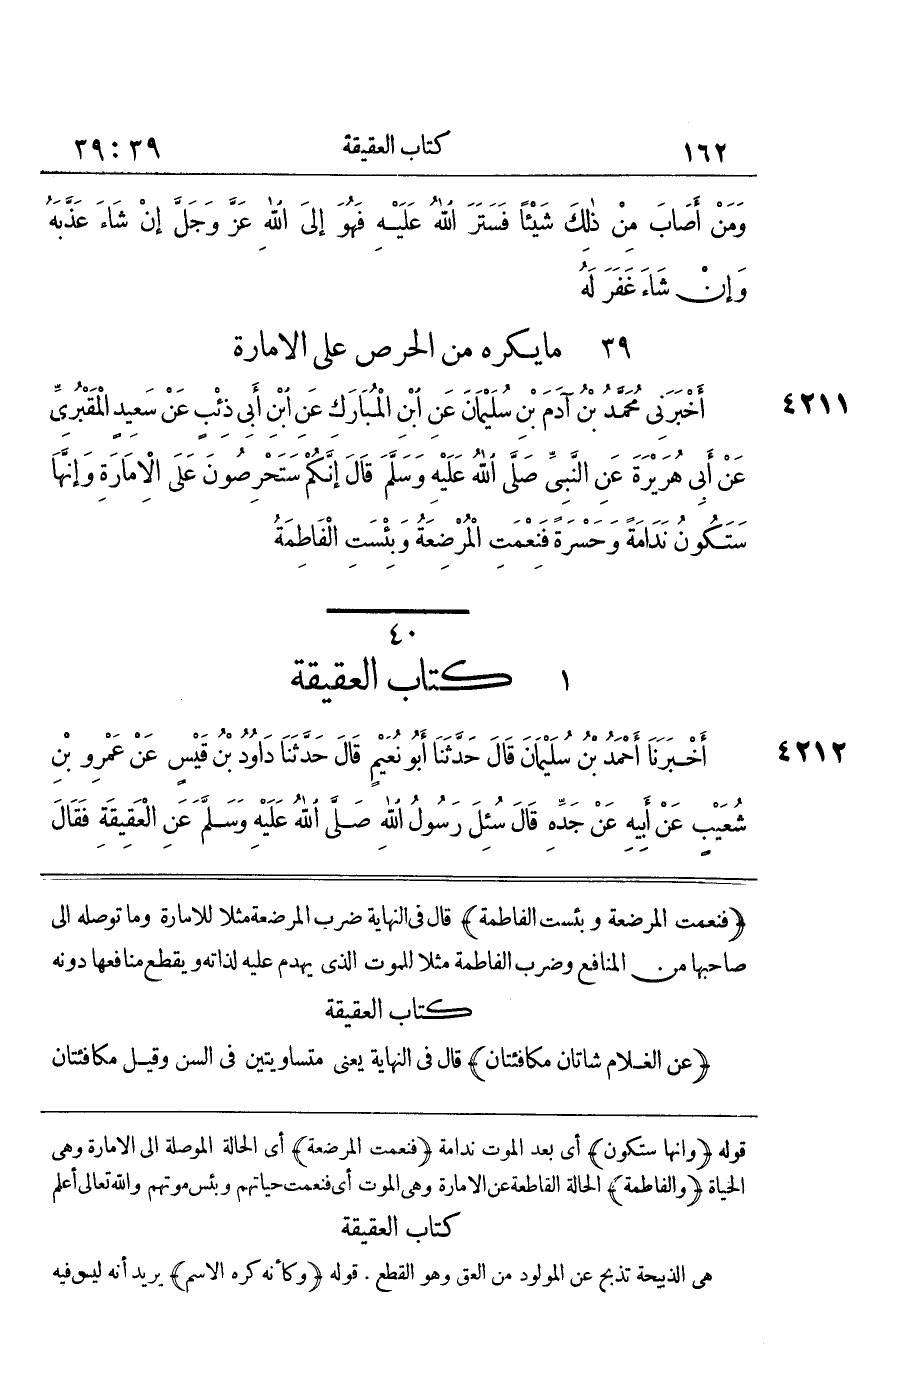 ١٦٢ كتاب العقيقة ٣٩:٣٩
وَمَنْ أَصَابَ مِنْ ذٰلِكَ شَيْئًا فَسَتَرَ اللّٰهُ عَلَيْهِ فَهُوَ إِلَى اللّٰهِ عَزَّ وَجَلَّ إِنْ شَاءَ عَذَّبَهُ
وَإِنْ شَاءَ غَفَرَ لَهُ
٣٩ مايكره من الحرص على الامارة
٤٢١١ أَخْبَرَنِى مُحَمَّدُ بْنُ آدَمَ بْنِ سُلَيْمَانَ عَنِ ابْنِ الْمُبَارَكِ عَنِ ابْنِ أَبِى ذِئْبٍ عَنْ سَعِيدٍ الْمَقْبُرِىِّ
عَنْ أَبِى هُرَيْرَةَ عَنِ النَّبِىِّ صَلَّى اللّٰهُ عَلَيْهِ وَسَلَّمَ قَالَ إِنَّكُمْ سَتَحْرِصُونَ عَلَى الْإِمَارَةِ وَإِنَّهَا
سَتَكُونُ نَدَامَةً وَحَسْرَةً فَنِعْمَتِ الْمُرْضِعَةُ وَبِئْسَتِ الْفَاطِمَةُ
٤٠
١ كتاب العقيقة
٤٢١٢ أَخْبَرَنَا أَحْمَدُ بْنُ سُلَيْمَانَ قَالَ حَدَّثَنَا أَبُو نُعَيْمٍ قَالَ حَدَّثَنَا دَاوُدُ بْنُ قَيْسٍ عَنْ عَمْرِو بْنِ
شُعَيْبٍ عَنْ أَبِيهِ عَنْ جَدِّهِ قَالَ سُئِلَ رَسُولُ اللّٰهِ صَلَّى اللّٰهُ عَلَيْهِ وَسَلَّمَ عَنِ الْعَقِيقَةِ فَقَالَ
﴿فنعمت المرضعة وبئست الفاطمة﴾ قال فى النهاية ضرب المرضعة مثلا للامارة وما توصله الى
صاحبها من المنافع وضرب الفاطمة مثلا للموت الذى يهدم عليه لذاته ويقطع منافعها دونه
كتاب العقيقة
﴿عن الغلام شاتان مكافئتان﴾ قال فى النهاية يعنى متساويتين فى السن وقيل مكافئتان
قوله ﴿وانها ستكون﴾ أى بعد الموت ندامة ﴿فنعمت المرضعة﴾ أى الحالة الموصلة الى الامارة وهى
الحياة ﴿والفاطمة﴾ الحالة القاطعة عن الامارة وهى الموت أى فنعمت حياتهم وبئس موتهم والله تعالى أعلم
كتاب العقيقة
هى الذبيحة تذبح عن المولود من العق وهو القطع . قوله ﴿وكأنه كره الاسم﴾ يريد أنه ليس فيه